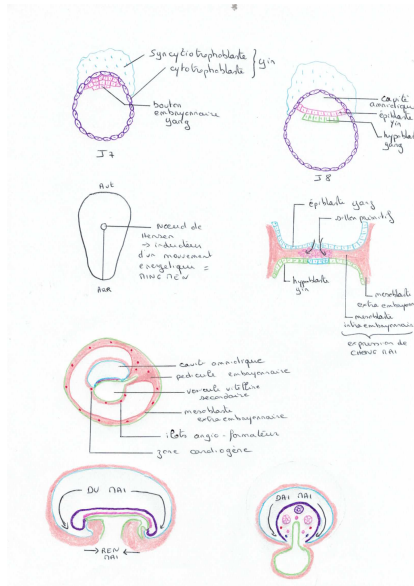 Syncytiotrophoblaste
cytotrophoblaste
yin
bouton
embryonnaire
yang
J7
cavité
amniotique
épiblaste
yin
hypoblaste
yang
J8
Avt
Noeud de
Hensen
→ inducteur
d'un mouvement
energetique =
MING MEN
ARR
épiblaste yang
sillon primitif
hypoblaste
yin
mesoblaste
extra embryonnaire
mesoblaste
intra embryonnaire
expression de
CHONG MAI
cavité amniotique
pedicule embryonnaire
vesicule vitelline
secondaire
mesoblaste
extra embryonnaire
ilots angio-formateurs
zone cardiogène
DU MAI
→ REN ←
MAI
DAI MAI